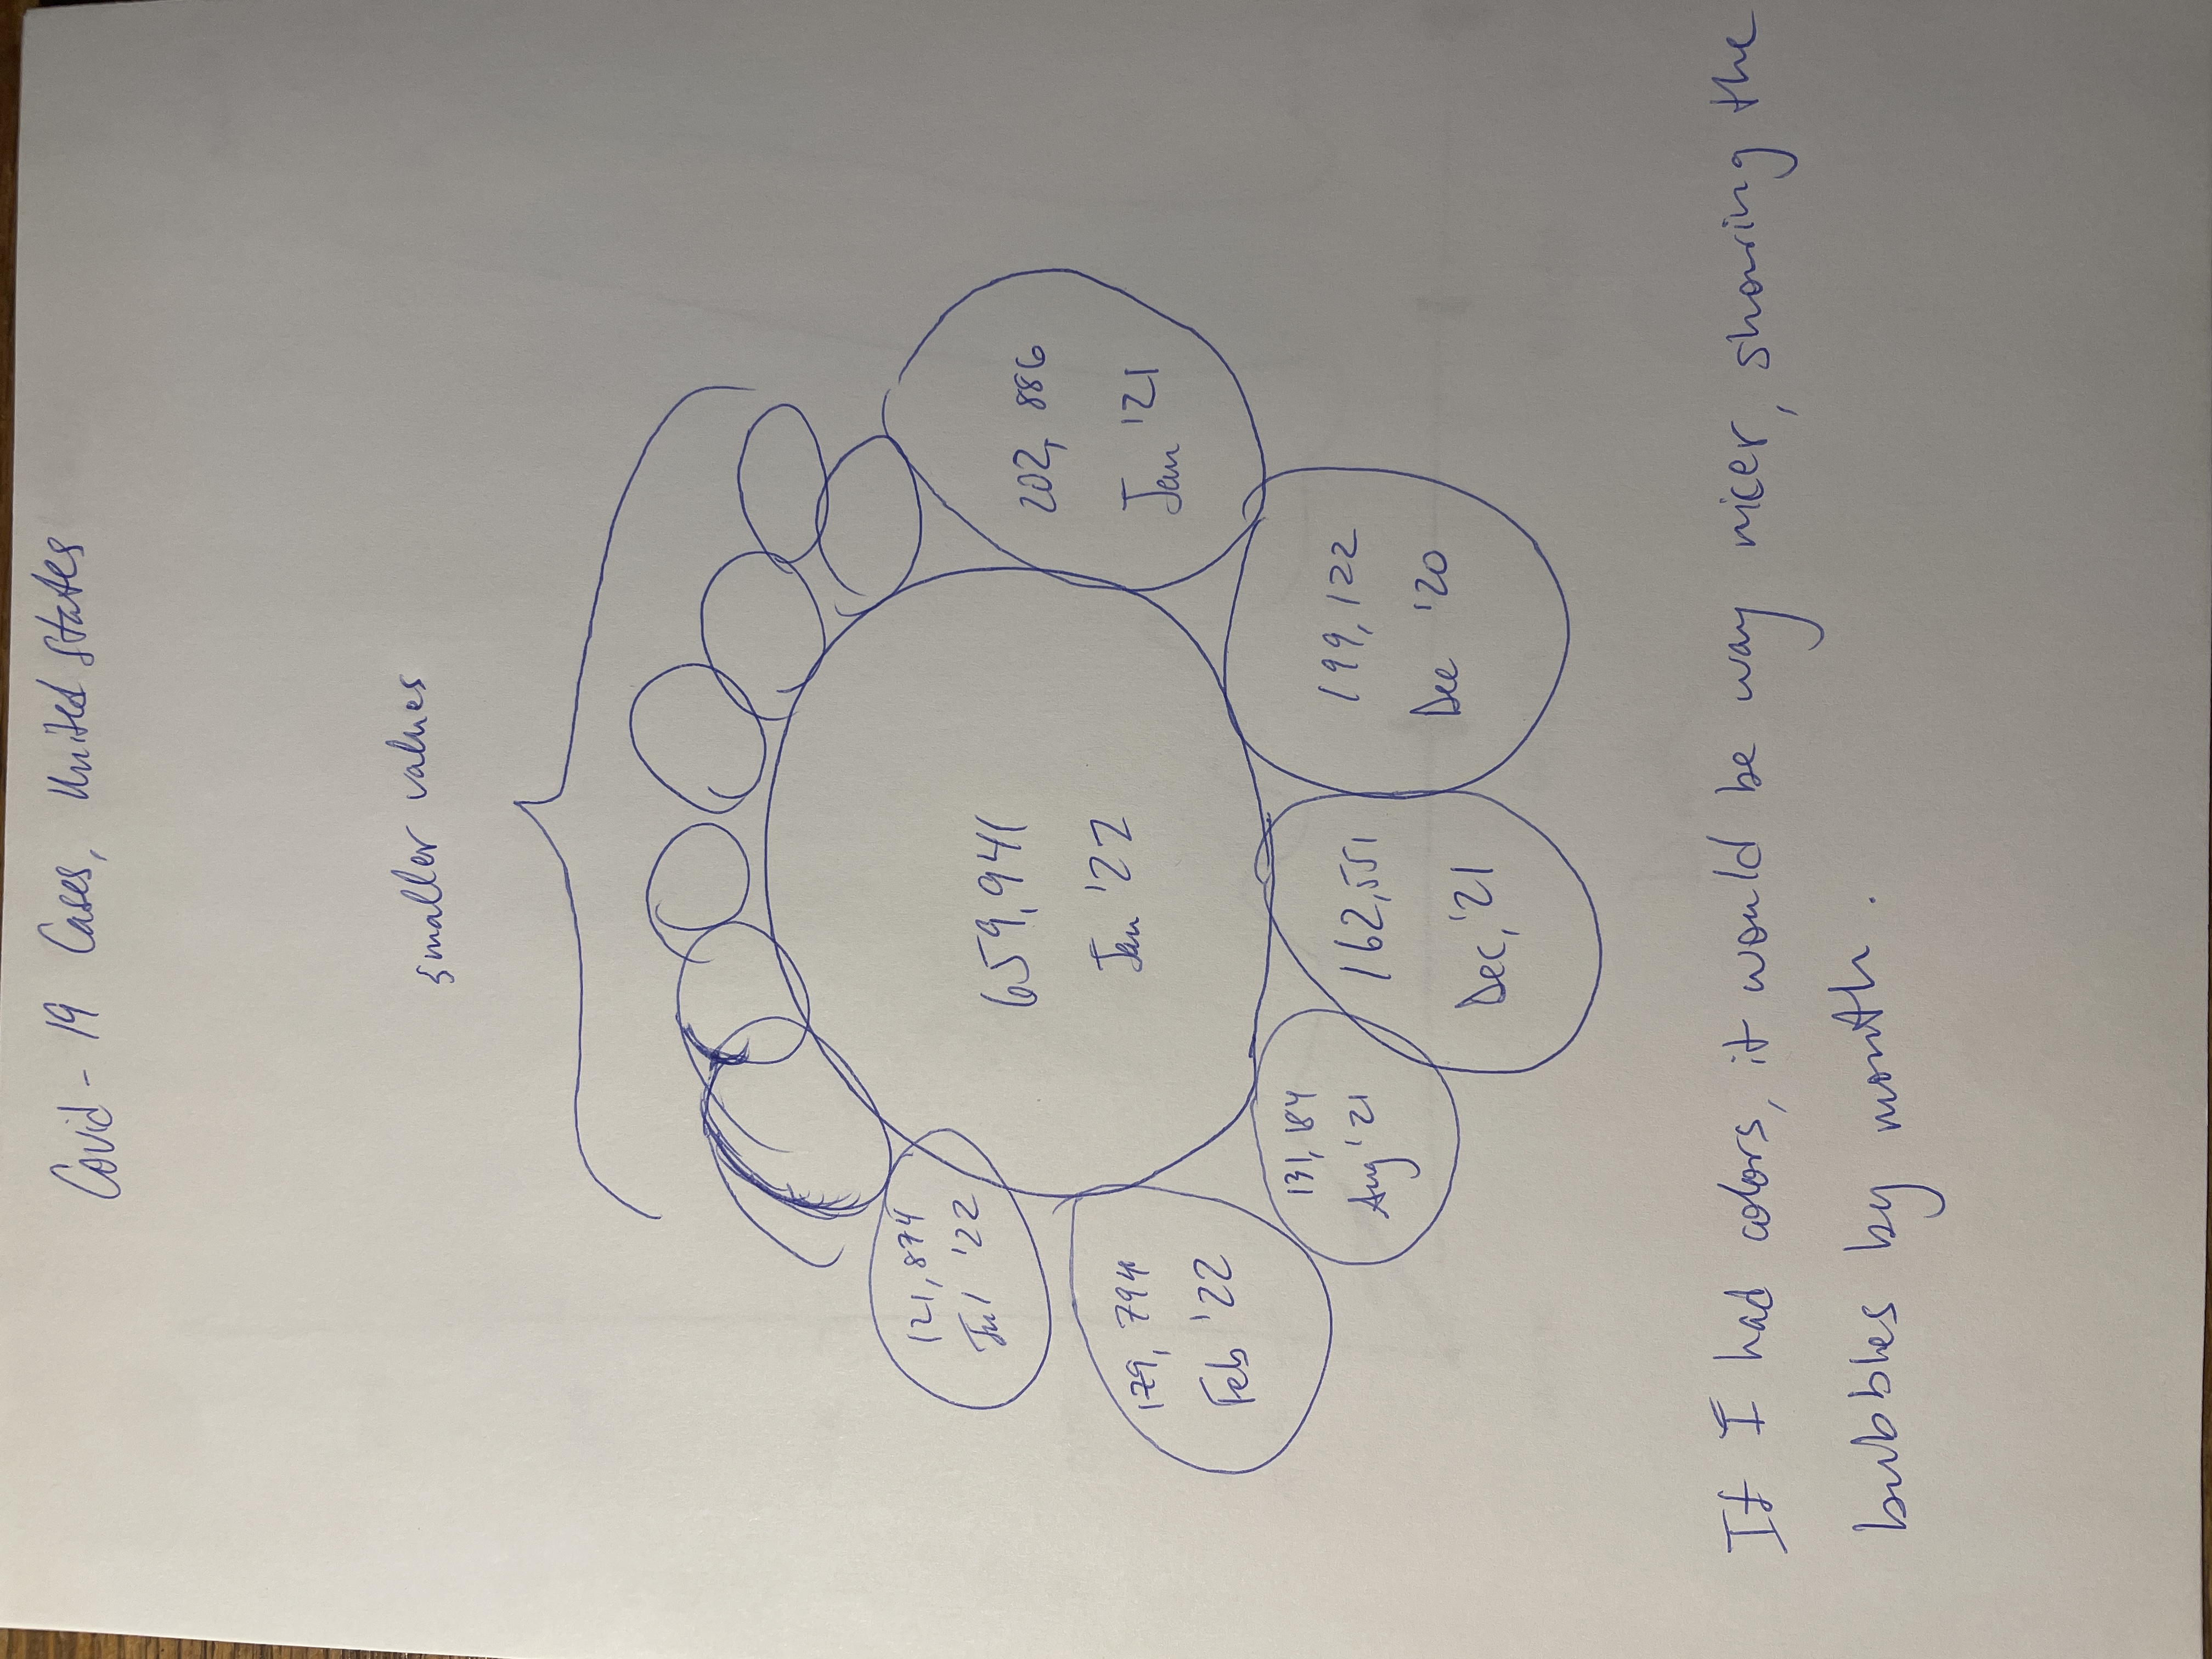 Covid-19 Cases, United States
smaller values
121,874
Jul '22
659,941
Jan '22
202,886
Jan '21
179,794
Feb '22
131,184
Aug '21
162,551
Dec, '21
199,122
Dec '20
If I had colors, it would be way nicer, sharing the
bubbles by month.